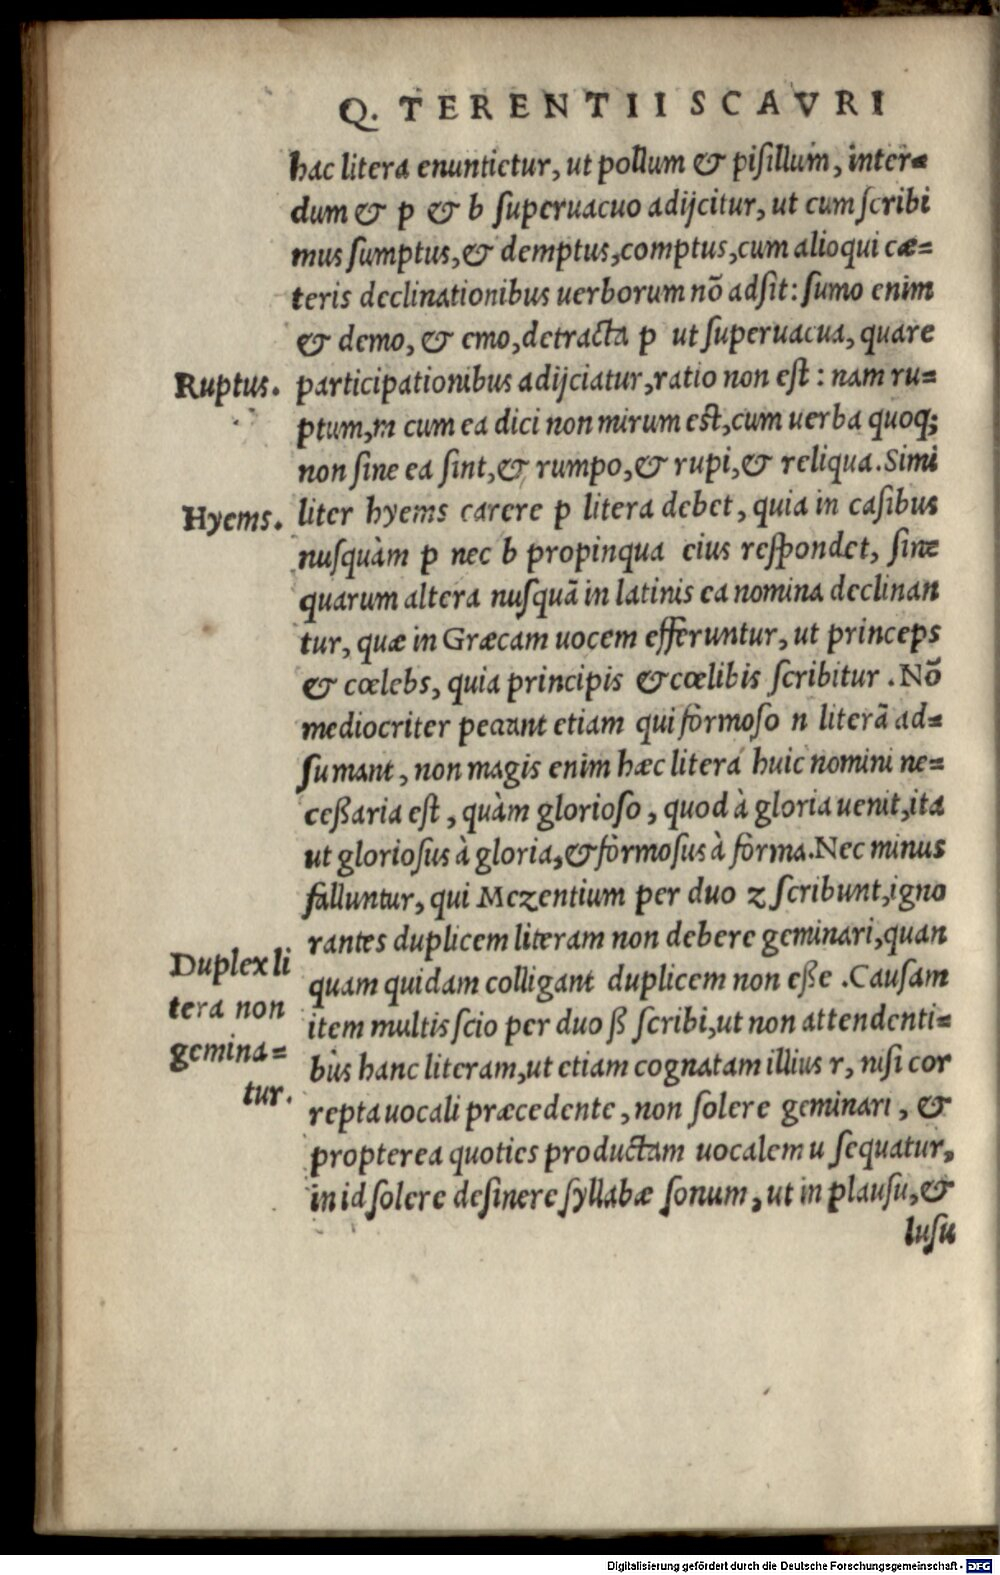 Q. TERENTII SCAVRI
hac litera enuntietur, ut pollum & pisillum, inter=
dum & p & b superuacuo adijcitur, ut cum scribi
mus sumptus, & demptus, comptus, cum alioqui cæ=
teris declinationibus uerborum nõ adsit: sumo enim
& demo, & emo, detracta p ut superuacua, quare
Ruptus. participationibus adijciatur, ratio non est: nam ru=
ptum, m cum ea dici non mirum est, cum uerba quoq;
non sine ea sint, & rumpo, & rupi, & reliqua. Simi
Hyems. liter hyems carere p litera debet, quia in casibus
nusquàm p nec b propinqua eius respondet, sine
quarum altera nusquã in latinis ea nomina declinan
tur, quæ in Græcam uocem efferuntur, ut princeps
& cœlebs, quia principis & cœlibis scribitur. Nõ
mediocriter peccant etiam qui formoso n literã ad=
sumant, non magis enim hæc litera huic nomini ne=
ceßaria est, quàm glorioso, quod à gloria uenit, ita
ut gloriosus à gloria, & formosus à forma. Nec minus
falluntur, qui Mezentium per duo z scribunt, igno
rantes duplicem literam non debere geminari, quan
Duplex li
quam quidam colligant duplicem non eße. Causam
tera non
item multis scio per duo ß scribi, ut non attendenti=
gemina=
bus hanc literam, ut etiam cognatam illius r, nisi cor
tur.
repta uocali præcedente, non solere geminari, &
propterea quoties productam uocalem u sequatur,
in id solere desinere syllabæ sonum, ut in plausu, &
lusu
Digitalisierung gefördert durch die Deutsche Forschungsgemeinschaft - DFG